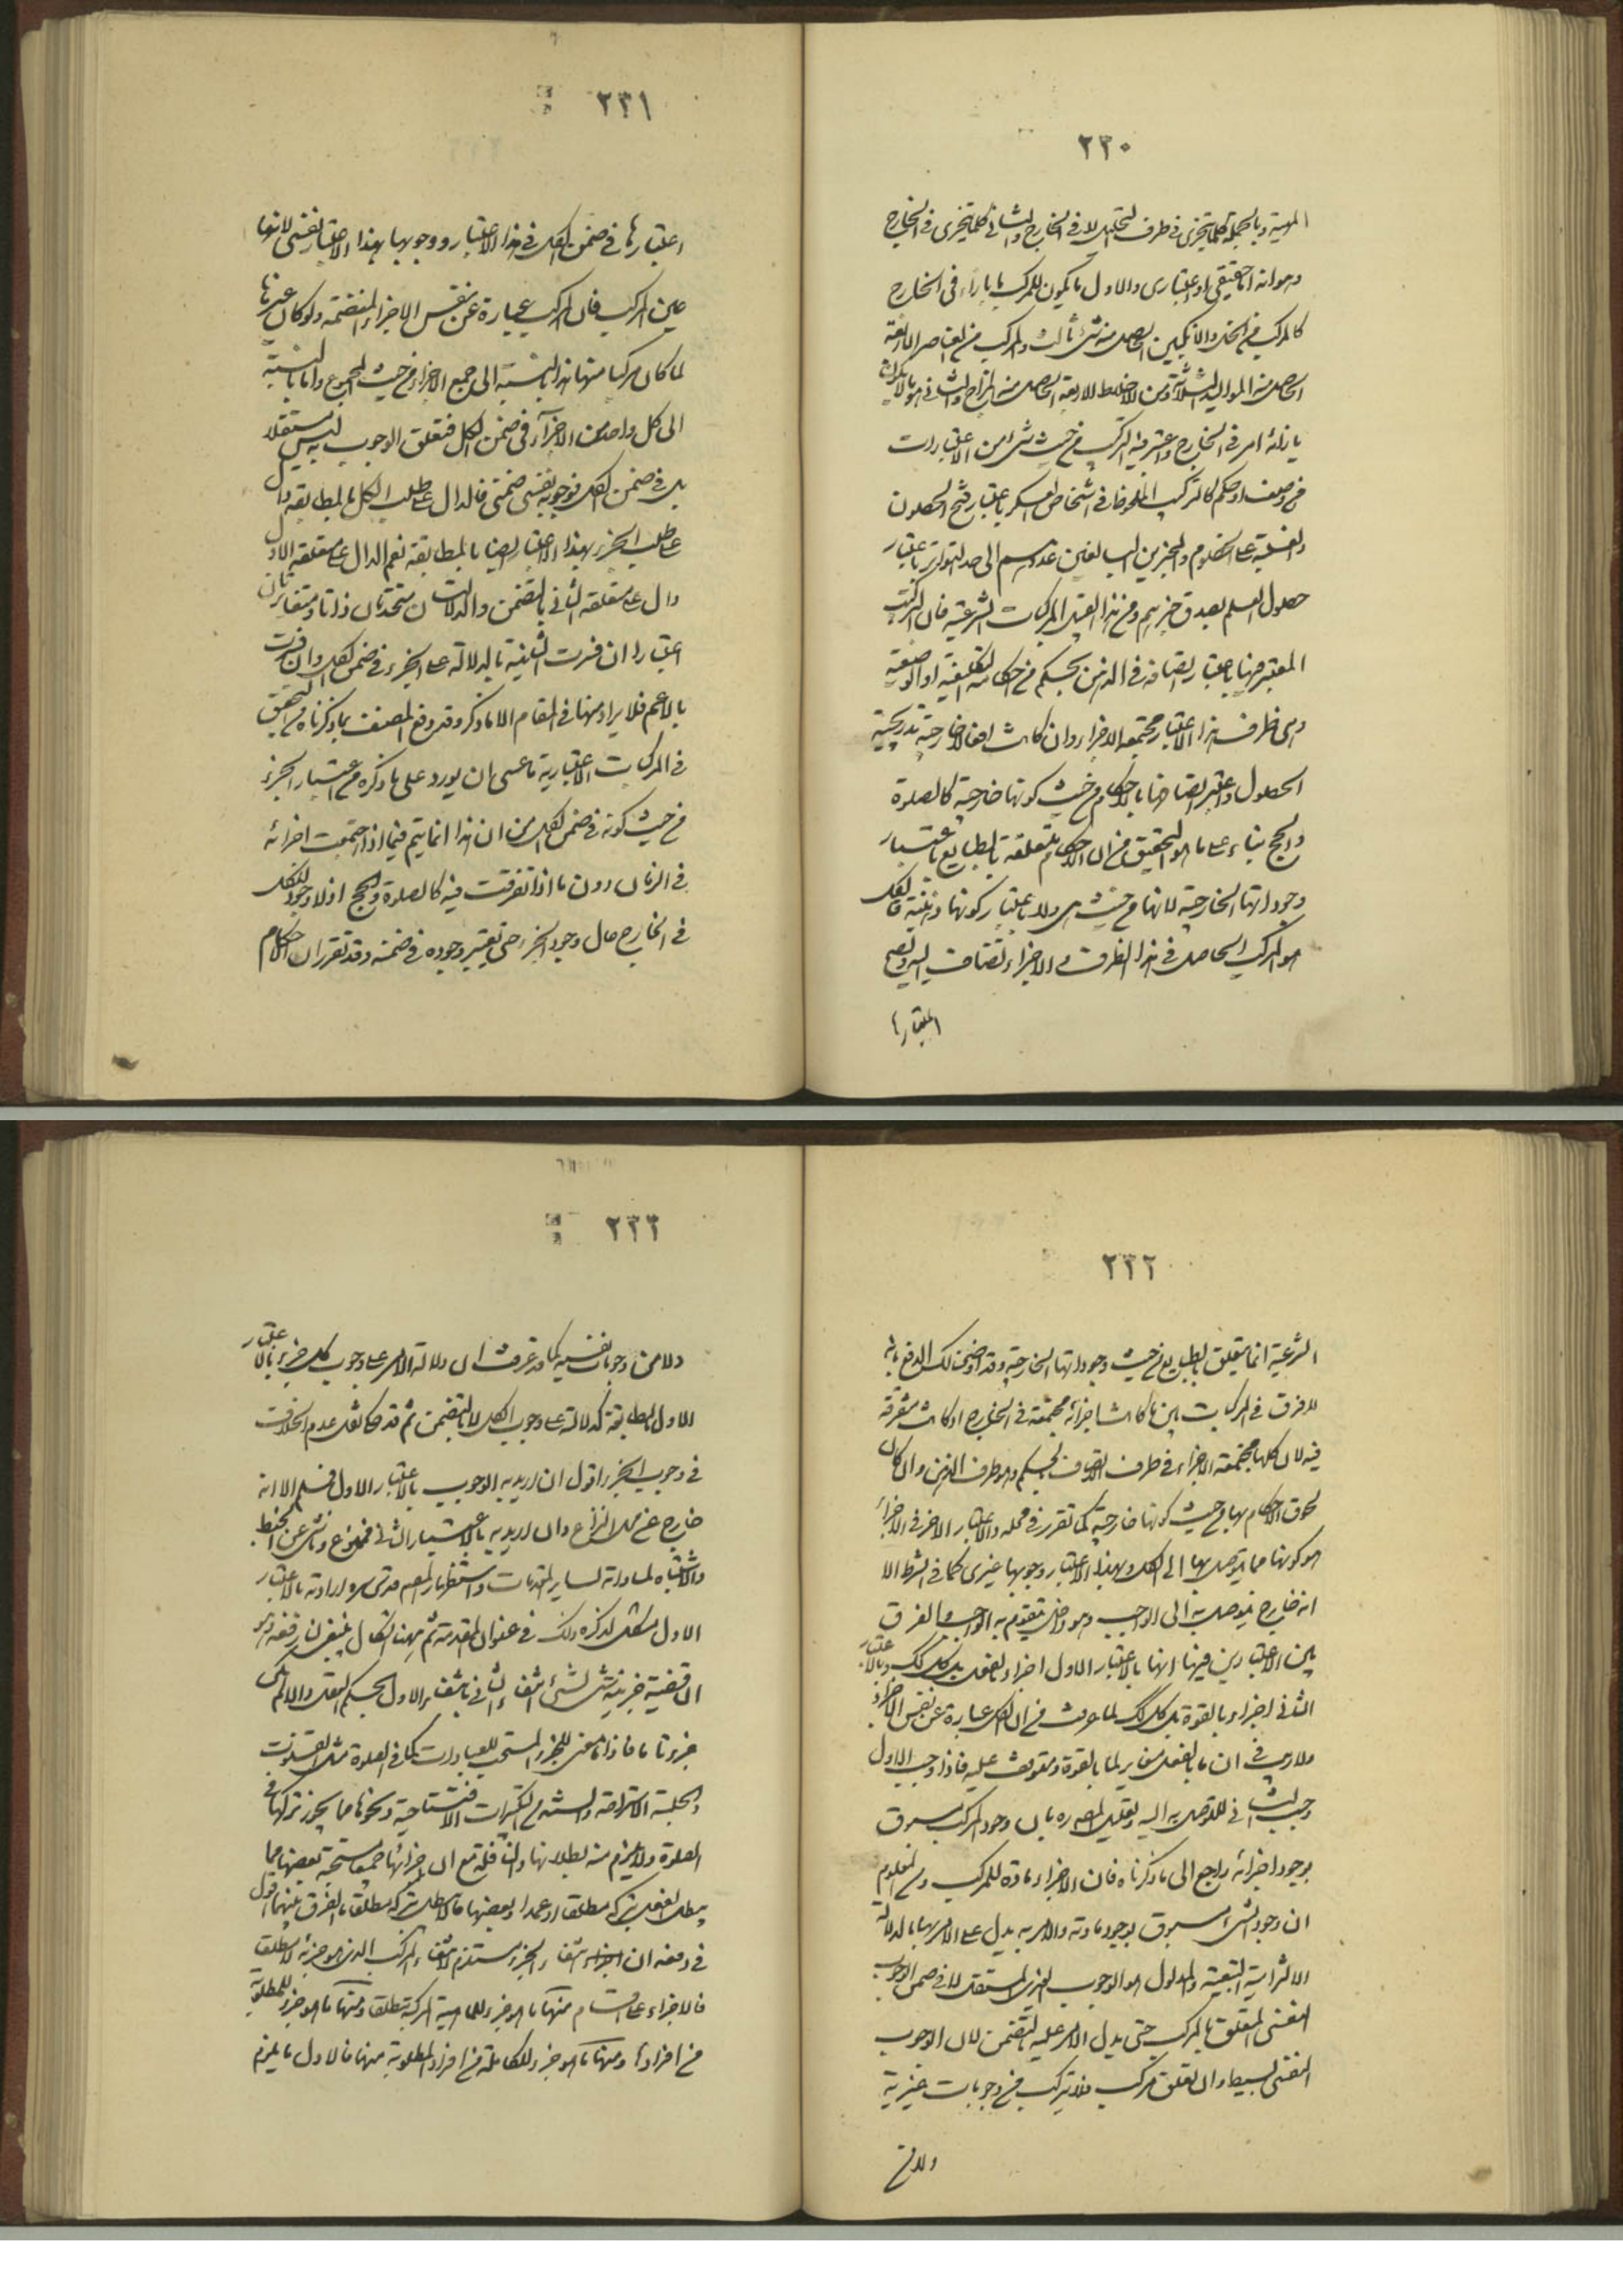 ٢٣٠
المهية وبالجملة كلما يتجزى في ظرف التحليل لا في الخارج والثاني كلما يتجزى في الخارج
وهو انه اما حقيقي او اعتباري والاول ما يكون للمركب ما بازاء في الخارج
كالمركب من الخل والانكبين الحاصل منه شئ ثالث والمركب من العناصر الاربعة
الحاصل منه المواليد الثلاثة ومن الاخلاط الاربعة الحاصل منه المزاج والثاني هو ما لا يكون
بازائه امر في الخارج واعتبر فيه التركب من حيث شئ من الاعتبارات
من وصف او حكم كالتركيب الملحوظ في اشخاص العسكر باعتبار فتح الحصون
والغلبة على الخصوم والمخبرين البالغين عددهم الى حد التواتر باعتبار
حصول العلم بصدق خبرهم ومن هذا القبيل المركبات الشرعية فان التركيب
المعتبر فيها باعتبار اتصافه في الذهن بحكم من احكامه التكليفية او الوضعية
وهي في ظرف هذا الاعتبار مجتمعة الاجزاء وان كانت افعالا خارجة تدريجية
الحصول واعتبر اتصافها بالاحكام من حيث كونها خارجية كالصلوة
والحج بناء على ما هو التحقيق من ان الاحكام متعلقة بالطبايع باعتبار
وجوداتها الخارجية لانها من حيث هي ولا باعتبار كونها ذهنية فالكل
هو المركب الحاصل في هذا الظرف والاجزاء تضاف اليه ويصح
اعتبارها
٢٣١
اعتبارها في ضمن الكل في هذا الاعتبار ووجوبها بهذا الاعتبار نفسي لانها
عين المركب فان المركب عبارة عن نفس الاجزاء المنضمة ولو كان غيرها
لما كان مركبا منها هذا بالنسبة الى جميع الاجزاء من حيث المجموع واما بالنسبة
الى كل واحد من الاجزاء في ضمن الكل فتعلق الوجوب به ليس مستقلا
بل في ضمن الكل فوجوبه نفسي ضمني فالدال على طلب الكل بالمطابقة دال
على طلب الجزء بهذا الاعتبار ايضا بالمطابقة نعم الدال على متعلقه الاول
دال على متعلقه الثاني بالتضمن والدلالتان متحدتان ذاتا ومتغايرتان
اعتبارا ان فسرت الثانية بالدلالة على الجزء في ضمن الكل وان فسرت
بالاعم فلا يراد منها في المقام الا ما ذكر وقد دفع المصنف بما ذكرناه من التحقيق
في المركبات الاعتبارية ما عسى ان يورد على ما ذكره من اعتبار الجزء
من حيث كونه في ضمن الكل من ان هذا انما يتم فيما اذا اجتمعت اجزائه
في الزمان دون ما اذا تفرقت فيه كالصلوة والحج اذ لا وجود للكل
في الخارج حال وجود الجزء حتى يعتبر وجوده في ضمنه وقد تقرر ان الاحكام
٢٣٢
الشرعية انما يتعلق بالطبايع من حيث وجوداتها الخارجية وقد اوضحنا لك الدفع بانه
لا فرق في المركبات بين ما كانت اجزائه مجتمعة في الخارج او كانت متفرقة
فيه لان كلها مجتمعة الاجزاء في ظرف الاتصاف بالحكم وهو ظرف الذهن وان كان
لحوق الاحكام بها من حيث كونها خارجية كما تقرر في محله والاعتبار الاخر في الاجزاء
هو كونها مما يتوصل بها الى الكل وبهذا الاعتبار وجوبها غيري كما في الشرط الا
انه خارج يتوصل به الى الواجب وهو داخل يتقوم به الواجب والفرق
بين الاعتبارين فيها انها بالاعتبار الاول اجزاء بالفعل بكل ذلك وبالاعتبار
الثاني اجزاء بالقوة بكل ذلك لما عرفت من ان الكل عبارة عن نفس الاجزاء
ولا ريب في ان ما بالفعل مغاير لما بالقوة ومتوقف عليه فاذا وجب الاول
وجب الثاني للتوصل به اليه وتعليل المصره بان وجود المركب مسبوق
بوجود اجزائه راجع الى ما ذكرناه فان الاجزاء مادة للمركب ومن المعلوم
ان وجود الشئ مسبوق بوجود مادته والامر به يدل على الامر بها بالدلالة
الالتزامية التبعية والمدلول هو الوجوب الغيري المستقل لا في ضمن الوجوب
النفسي المتعلق بالمركب حتى يدل الامر عليه بالتضمن لان الوجوب
النفسي بسيط وان تعلق بمركب فلا يتركب من وجوبات غيرية
ولا من
٢٣٣
ولا من وجوبات نفسية كما قد عرفت ان دلالة الامر على وجوب كل جزء بالاعتبار
الاول بالمطابقة كدلالته على وجوب الكل لا بالتضمن ثم قد حكى نقل عدم الخلاف
في وجوب الجزء اقول ان اريد به الوجوب بالاعتبار الاول فمسلم الا انه
خارج عن محل النزاع وان اريد به بالاعتبار الثاني فممنوع وناش عن الخبط
والاشتباه لمساواته لساير المقدمات واستظهار المصنف قدس سره ارادته بالاعتبار
الاول مشكل لذكره ذلك في عنوان المقدمة ثم ههنا اشكال ينبغي ان رفعه وهو
ان قضية جزئية شئ لشئ انتفاء الثاني بانتفاء الاول بحكم العقل والا لم يكن
جزء له فاذا ما معنى الجزء المستحب للعبادات كما في الصلوة مثل القنوت
وجلسة الاستراحة والستة من التكبيرات الافتتاحية ونحوها مما يجوز تركها في
الصلوة ولا يلزم منه بطلانها والنافلة مع ان اجزائها جميعا مستحبة بعضها مما
يبطل الفعل بتركه مطلقا او عمدا وبعضها ما لا يبطل بتركه مطلقا ما الفرق بينهما اقول
في دفعه ان انتفاء الجزء مستلزم لانتفاء المركب الذي هو جزئه لا مطلقا
فالاجزاء على اقسام منها ما هو جزء للماهية المركبة مطلقا ومنها ما هو جزء للمطلوبة
من افرادها ومنها ما هو جزء للكاملة من افراد المطلوبة منها فالاول ما يلزم